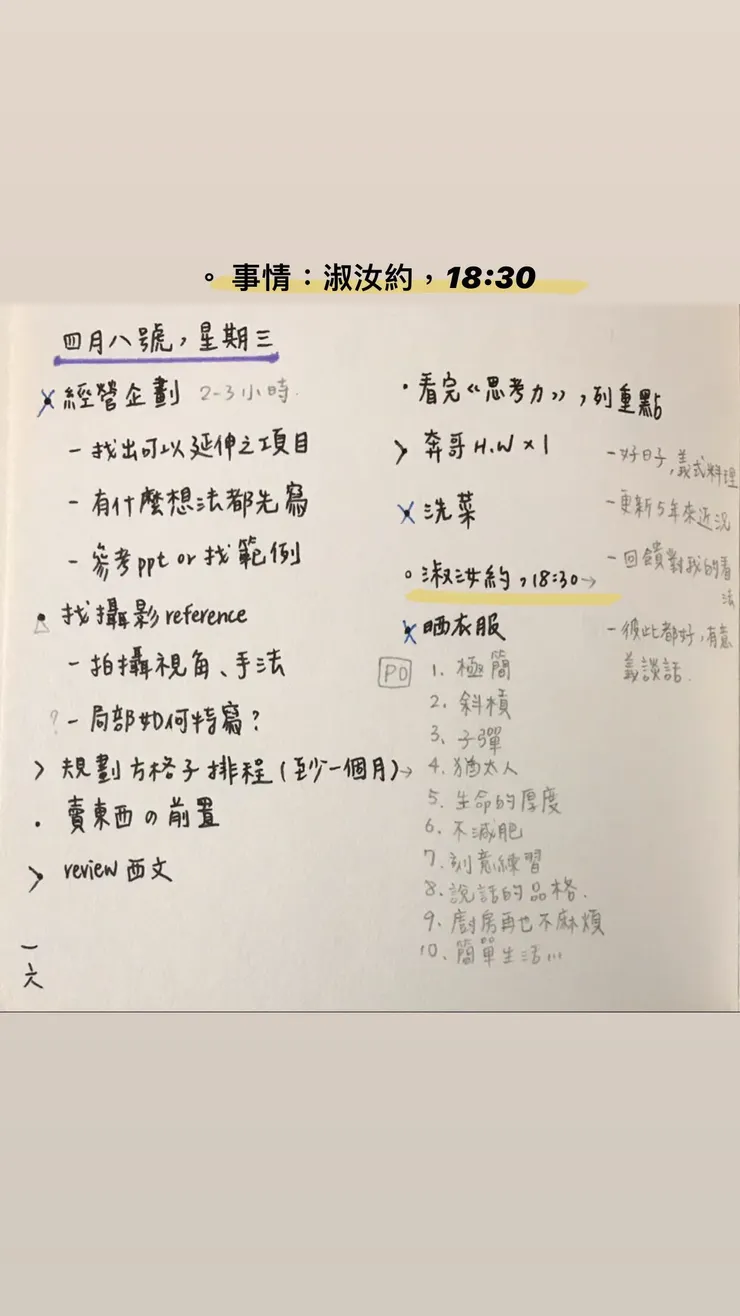 。事情：淑汝約，18:30
四月八號，星期三
× 經營企劃 2-3小時.
- 找出可以延伸之項目
- 有什麼想法都先寫
- 參考ppt or 找範例
• 找攝影reference
- 拍攝視角、手法
? - 局部如何特寫？
> 規劃方格子排程（至少一個月）→
• 賣東西の前置
> review 西文
一六
• 看完《思考力》，列重點
> 奔哥 H.W × 1
× 洗菜
。淑汝約，18:30→
- 好日子，義式料理
- 更新5年來近況
- 回饋對我的看法
- 彼此都好，有意義談話.
× 晒衣服
PO
1. 極簡
2. 斜槓
3. 子彈
4. 猶太人
5. 生命的厚度
6. 不減肥
7. 刻意練習
8. 說話的品格.
9. 廚房再也不麻煩
10. 簡單生活...